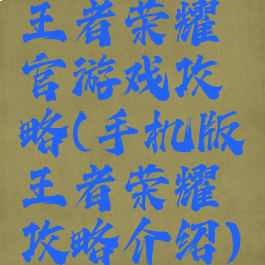 王者荣耀
官游戏攻
略(手机版
王者荣耀
攻略介绍)